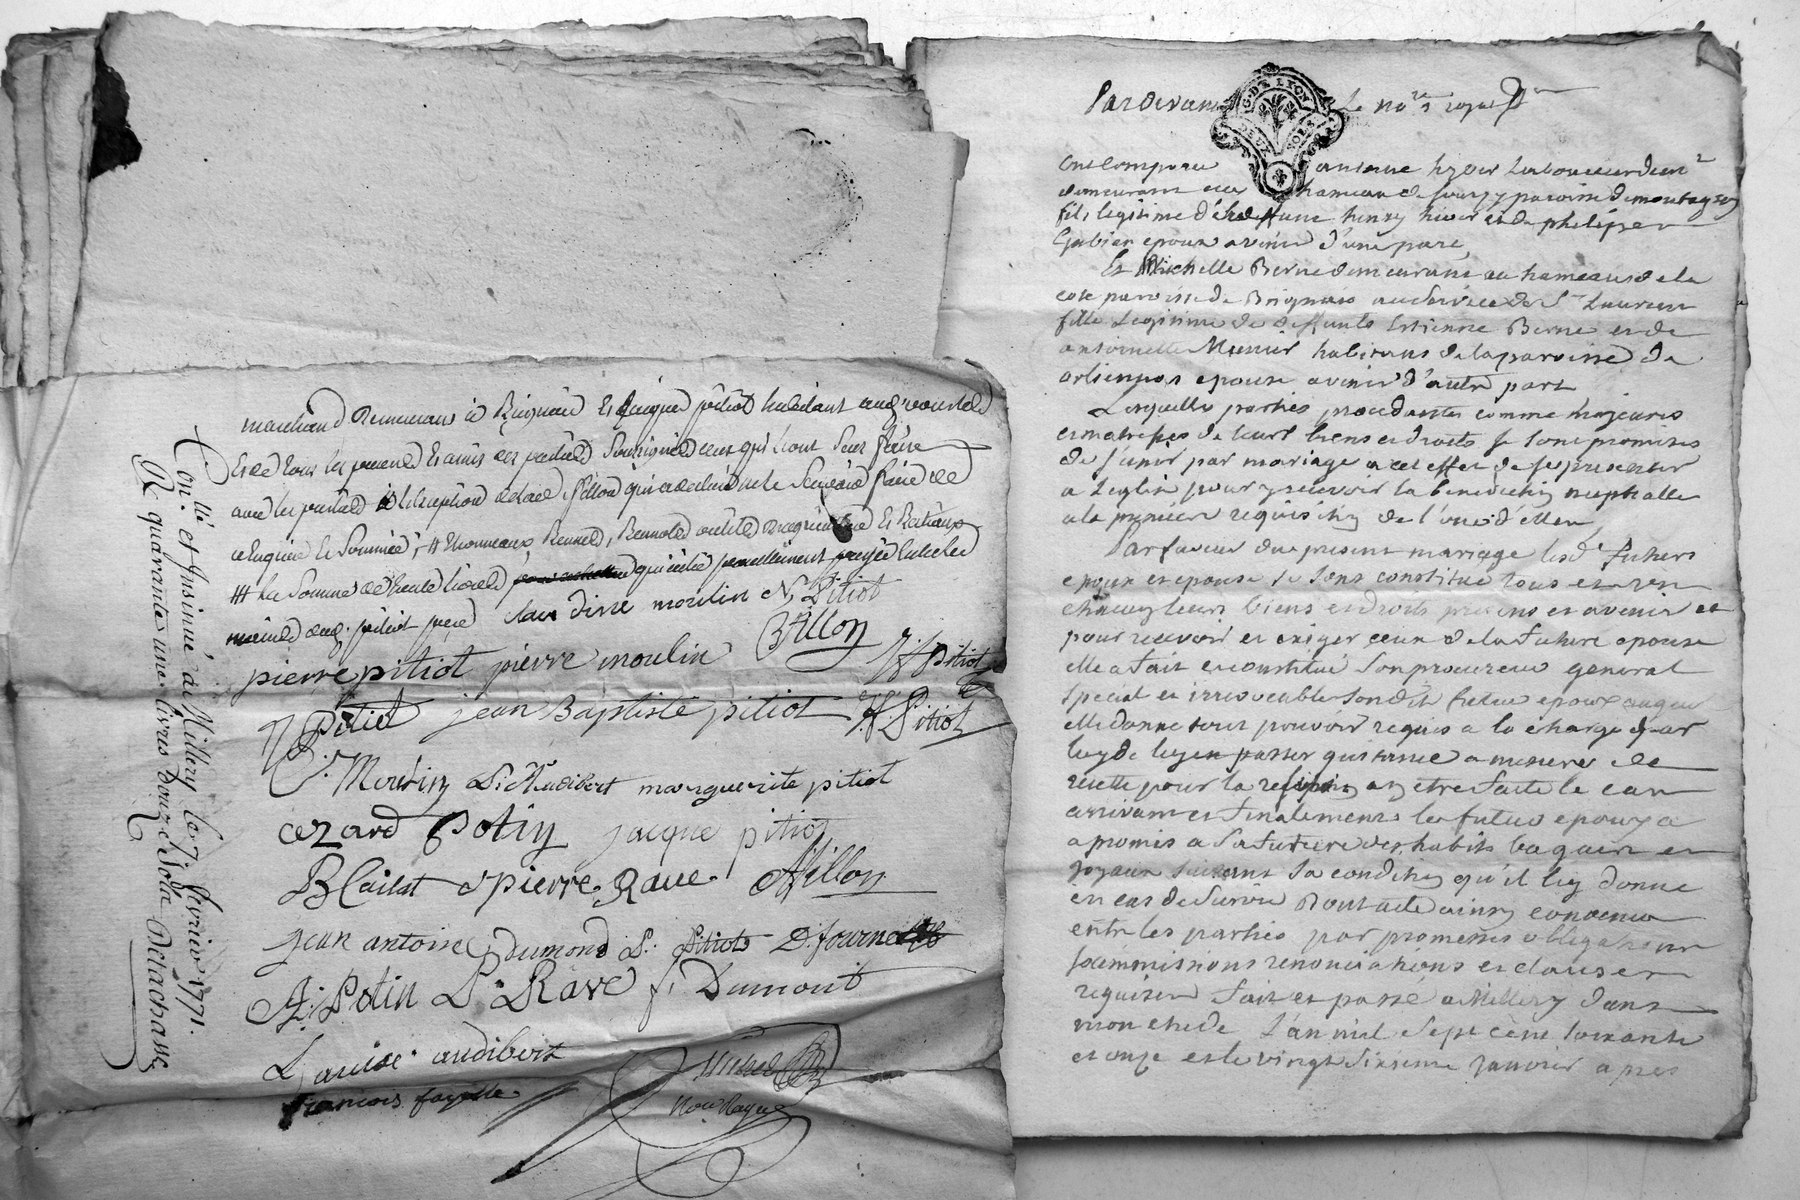 marchand demeurant à Brignais et Jacques pitiot habitant
et de tous les parents et amis des parties soussignés ceux qui l'ont sceu faire
avec les parties à l'exception de la d. fillon qui a declaré ne le sçavoir faire de
ce enquise et sommée
la somme de trente livres
pitiot père claudine moulin N Pitiot
pierre pitiot pierre moulin fillon pitiot
Pitiot jean Baptiste pitiot Pitiot
Moulin Audibert marguerite pitiot
cezard Potin jacque pitiot
pierre Rave fillon
jean antoine Dumond Pitiot D. fourne
Potin Rave f. Dumont
Louise audibert
francois fayolle
Con.llé et Insinué à Millery le 7 fevrier 1771.
R. quarante une livres douze sols Delachassé
Pardevant Le no.re royal
G. DE LYON
DEUX SOLS
ont comparu antoine
demeurant au hameau de paroisse de montagny
fils legitime de deffunt henry hiver et de philipe
Gabien epoux avenir d'une part
Et Michelle Berne demeurante au hameau de la
cote paroisse de Brignais au service de Sr. Laurent
fille Legitime de deffunts Estienne Berne et de
antoinette Meunier habitans de la paroisse de
orlienas epouse avenir d'autre part
Lesquelles parties procedantes comme majeures
et maitresses de leurs biens et droits se sont promises
de s'unir par mariage a cet effet de se presenter
a Leglise pour y recevoir la benediction nuptialle
a la premiere requisition de l'une d'elles
Par faveur du present mariage lesd. futurs
epoux et epouse se sont constitué tous et un
chacun leurs biens et droits presens et avenir et
pour recevoir et exiger ceux de la future epouse
elle a fait et constitué son procureur general
special et irrevocable sondit futur epoux auquel
elle donne tout pouvoir requis a la charge par
luy de luy en passer quittance a mesure de
recette pour la restitution en etre faite le cas
arrivant et finalement le futur epoux a
promis a sa future des habits bagues et
joyaux suivant sa condition qu'il luy donne
en cas de survie Dont acte ainsy convenu
entre les parties par promesses obligations
soummissions renonciations et clauses
requises fait et passé a Millery dans
mon etude L'an mil sept cent soixante
et onze et le vingt sixieme janvier apres